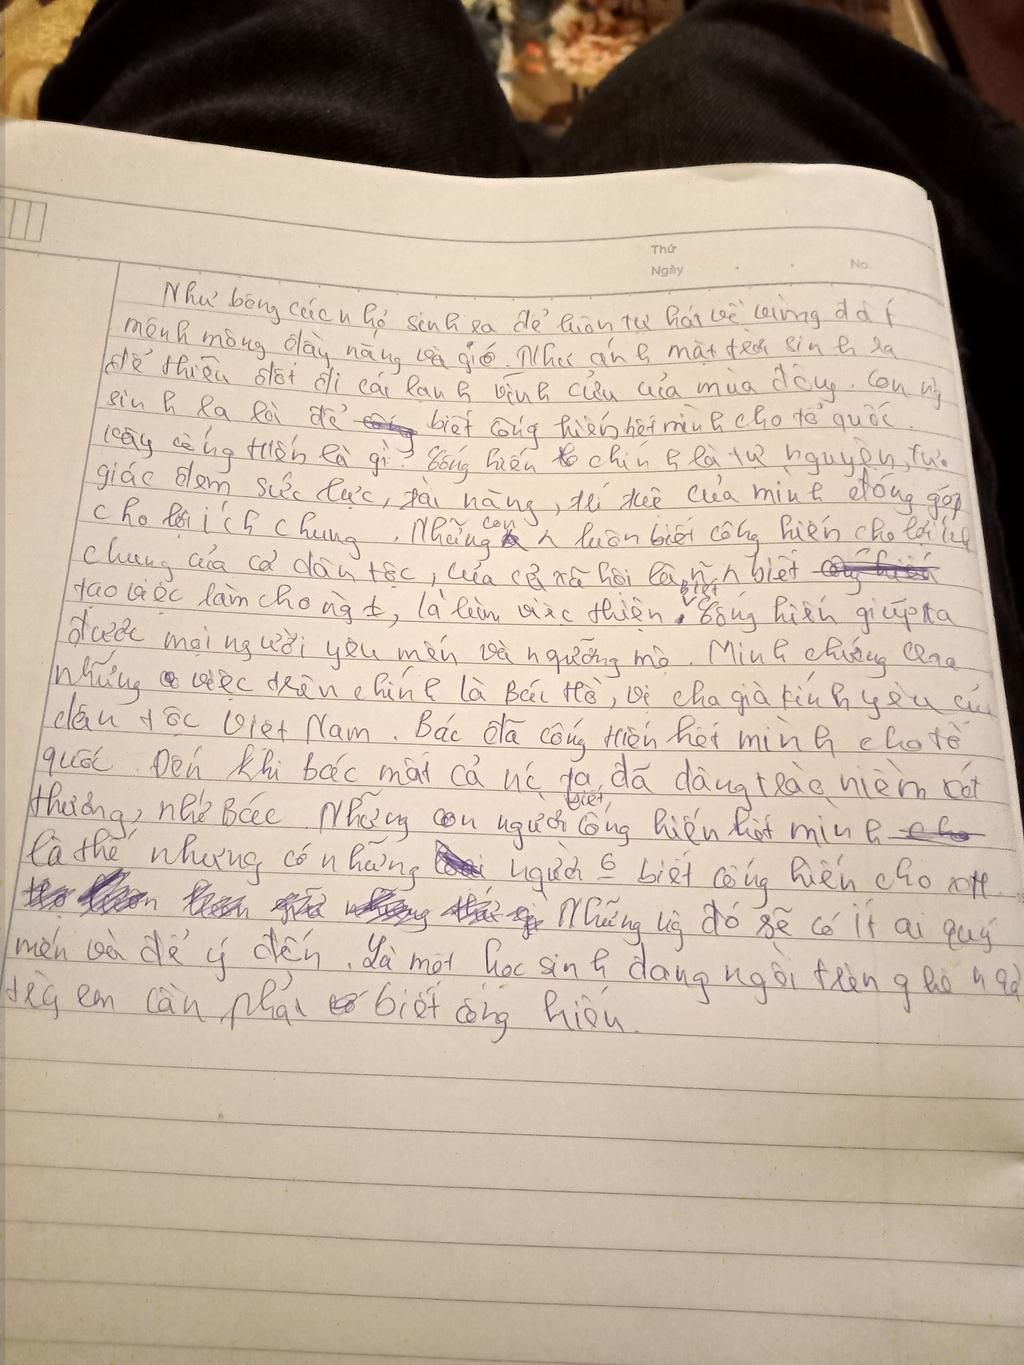 Thứ
Ngày
No.
Như bông cúc nhỏ sinh ra để luôn tự hát về vùng đất
mênh mông đầy nắng và gió. Như ánh mặt trời sinh ra
để thiêu đốt đi cái lạnh vĩnh cửu của mùa đông. Con ng
sinh ra là để biết cống hiến hết mình cho tổ quốc.
Vậy cống hiến là gì? Cống hiến chính là tự nguyện, tự
giác đem sức lực, tài năng, trí tuệ của mình đóng góp
cho lợi ích chung. Những con n luôn biết cống hiến cho lợi ích
chung của cả dân tộc, của cả xã hội là n biết
tạo việc làm cho ng #, là làm việc thiện. Việc cống hiến giúp ta
được mọi người yêu mến và ngưỡng mộ. Minh chứng
những việc trên chính là Bác Hồ, vị cha già kính yêu của
dân tộc Việt Nam. Bác đã cống hiến hết mình cho tổ
quốc. Đến khi bác mất cả nc ta đã dâng trào niềm xót
thương, nhớ Bác. Những con người biết cống hiến hết mình
là thế nhưng có những người biết cống hiến cho XH.
Những ng đó sẽ có ít ai quý
mến và để ý đến. Là một học sinh đang ngồi trên ghế nhà
trg em cần phải biết cống hiến.